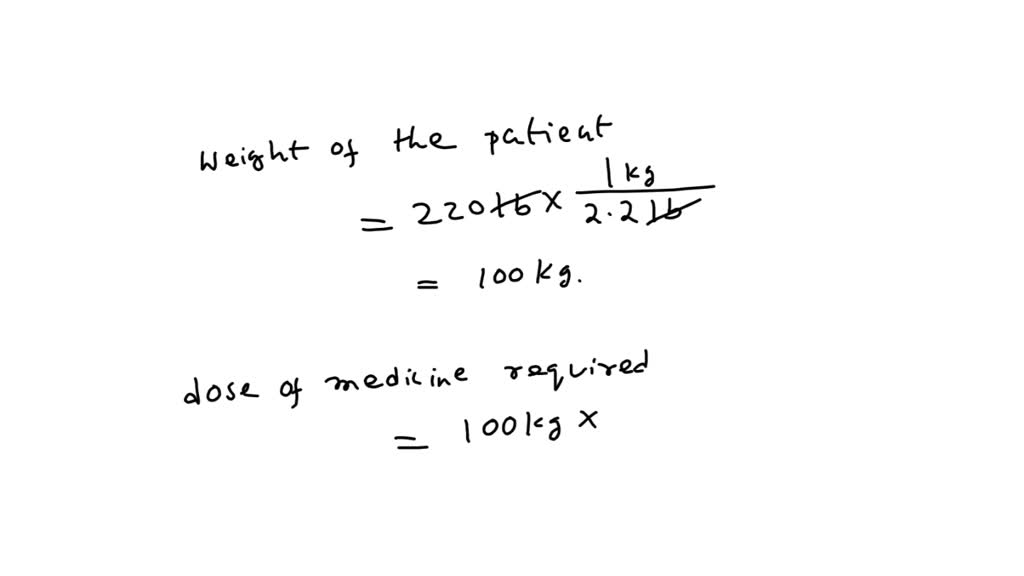 Weight of the patient
= 220 lb × 1 kg / 2.2 lb
= 100 kg.
dose of medicine required
= 100 kg ×